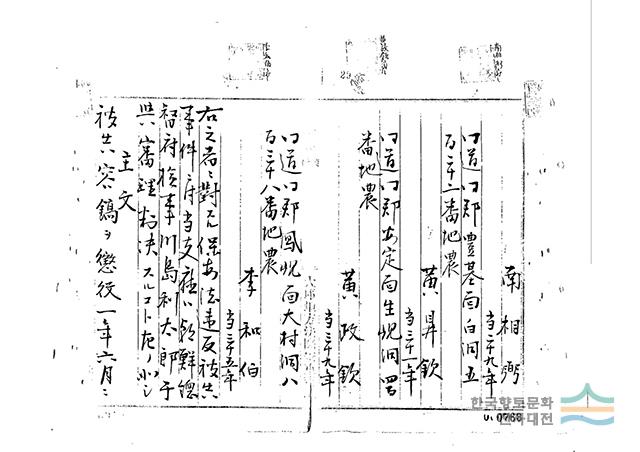 南相弼
当三十九年
仝道仝郡豊基面白洞五
百三十二番地農
黄昇欽
当三十一年
仝道仝郡安定面生峴洞
番地農
黄政欽
当三十九年
仝道仝郡鳳峴面大村洞八
百三十八番地農
李和伯
当三十五年
右之者ニ対スル保安法違反被告
事件ニ付当支庁ハ朝鮮総
督府検事川島利太郎干
與審理判決スルコト左ノ如シ
主文
被告容鎬ヲ懲役一年六月ニ
한국향토문화
전자대전
0768